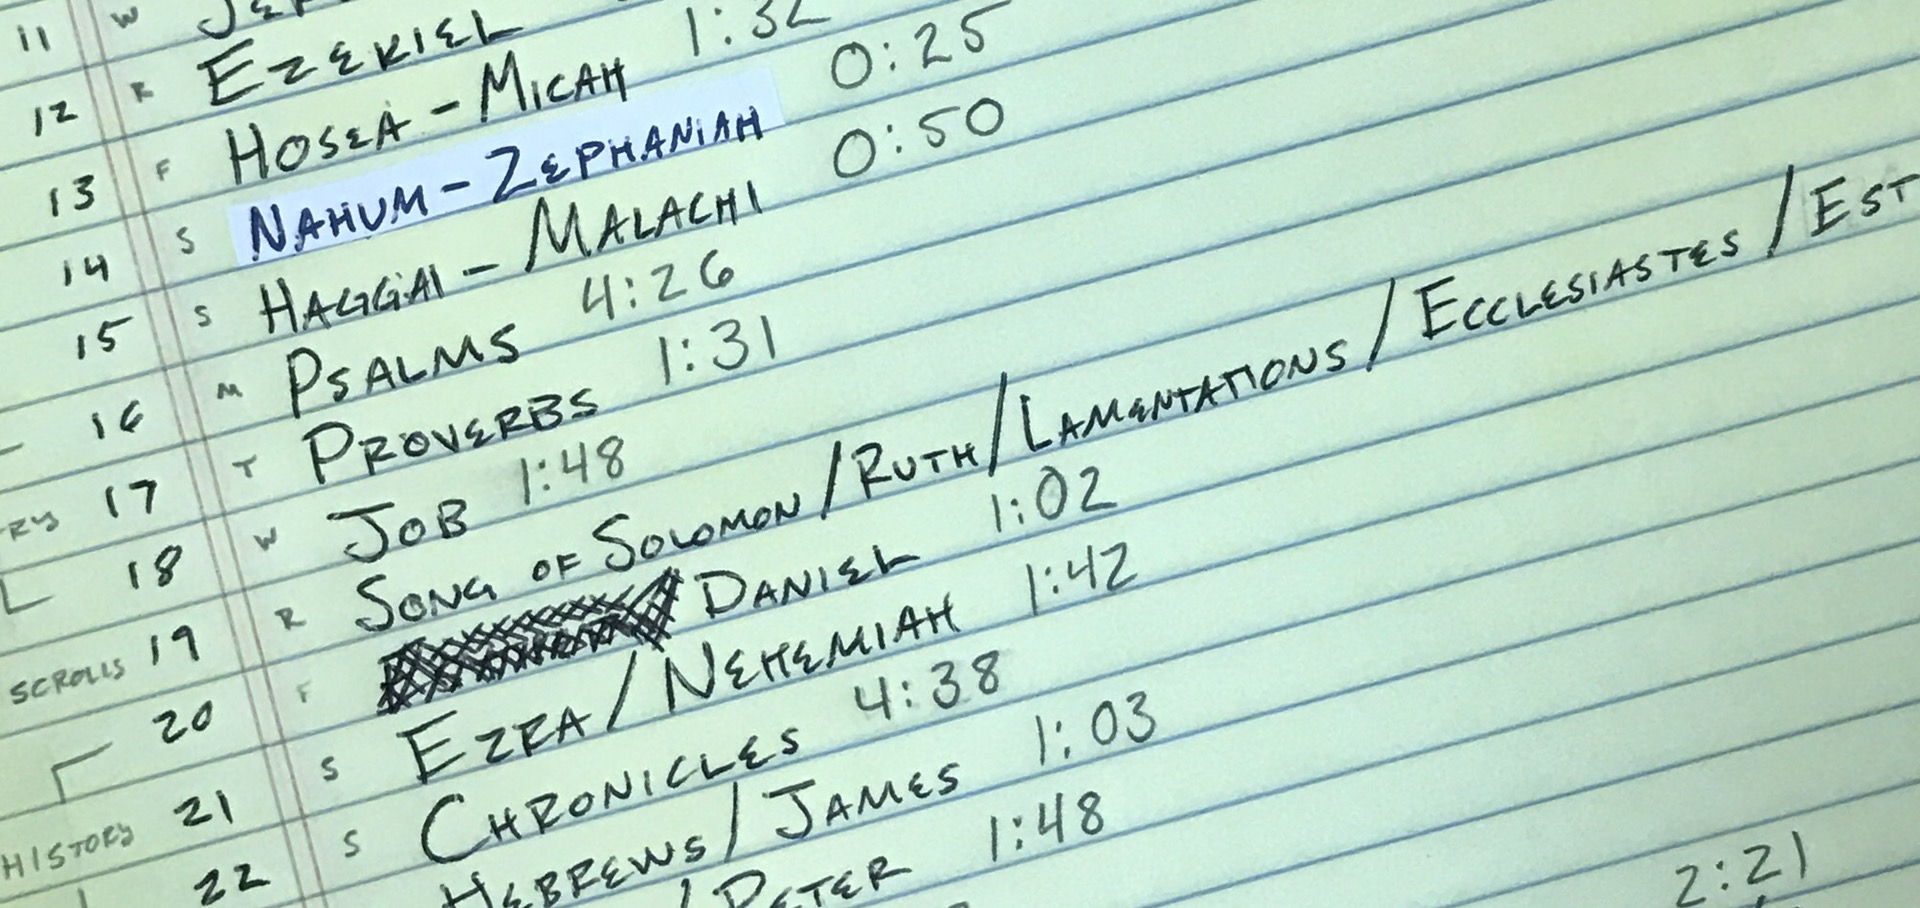 11 W
12 R EZEKIEL
13 F HOSEA - MICAH 1:32
14 S NAHUM - ZEPHANIAH 0:25
15 S HAGGAI - MALACHI 0:50
16 M PSALMS 4:26
RY 17 T PROVERBS 1:31
18 W JOB 1:48
SCROLLS 19 R SONG OF SOLOMON / RUTH / LAMENTATIONS / ECCLESIASTES / EST
20 F DANIEL 1:02
HISTORY 21 S EZRA / NEHEMIAH 1:42
22 S CHRONICLES 4:38
HEBREWS / JAMES 1:03
/ PETER 1:48
2:21